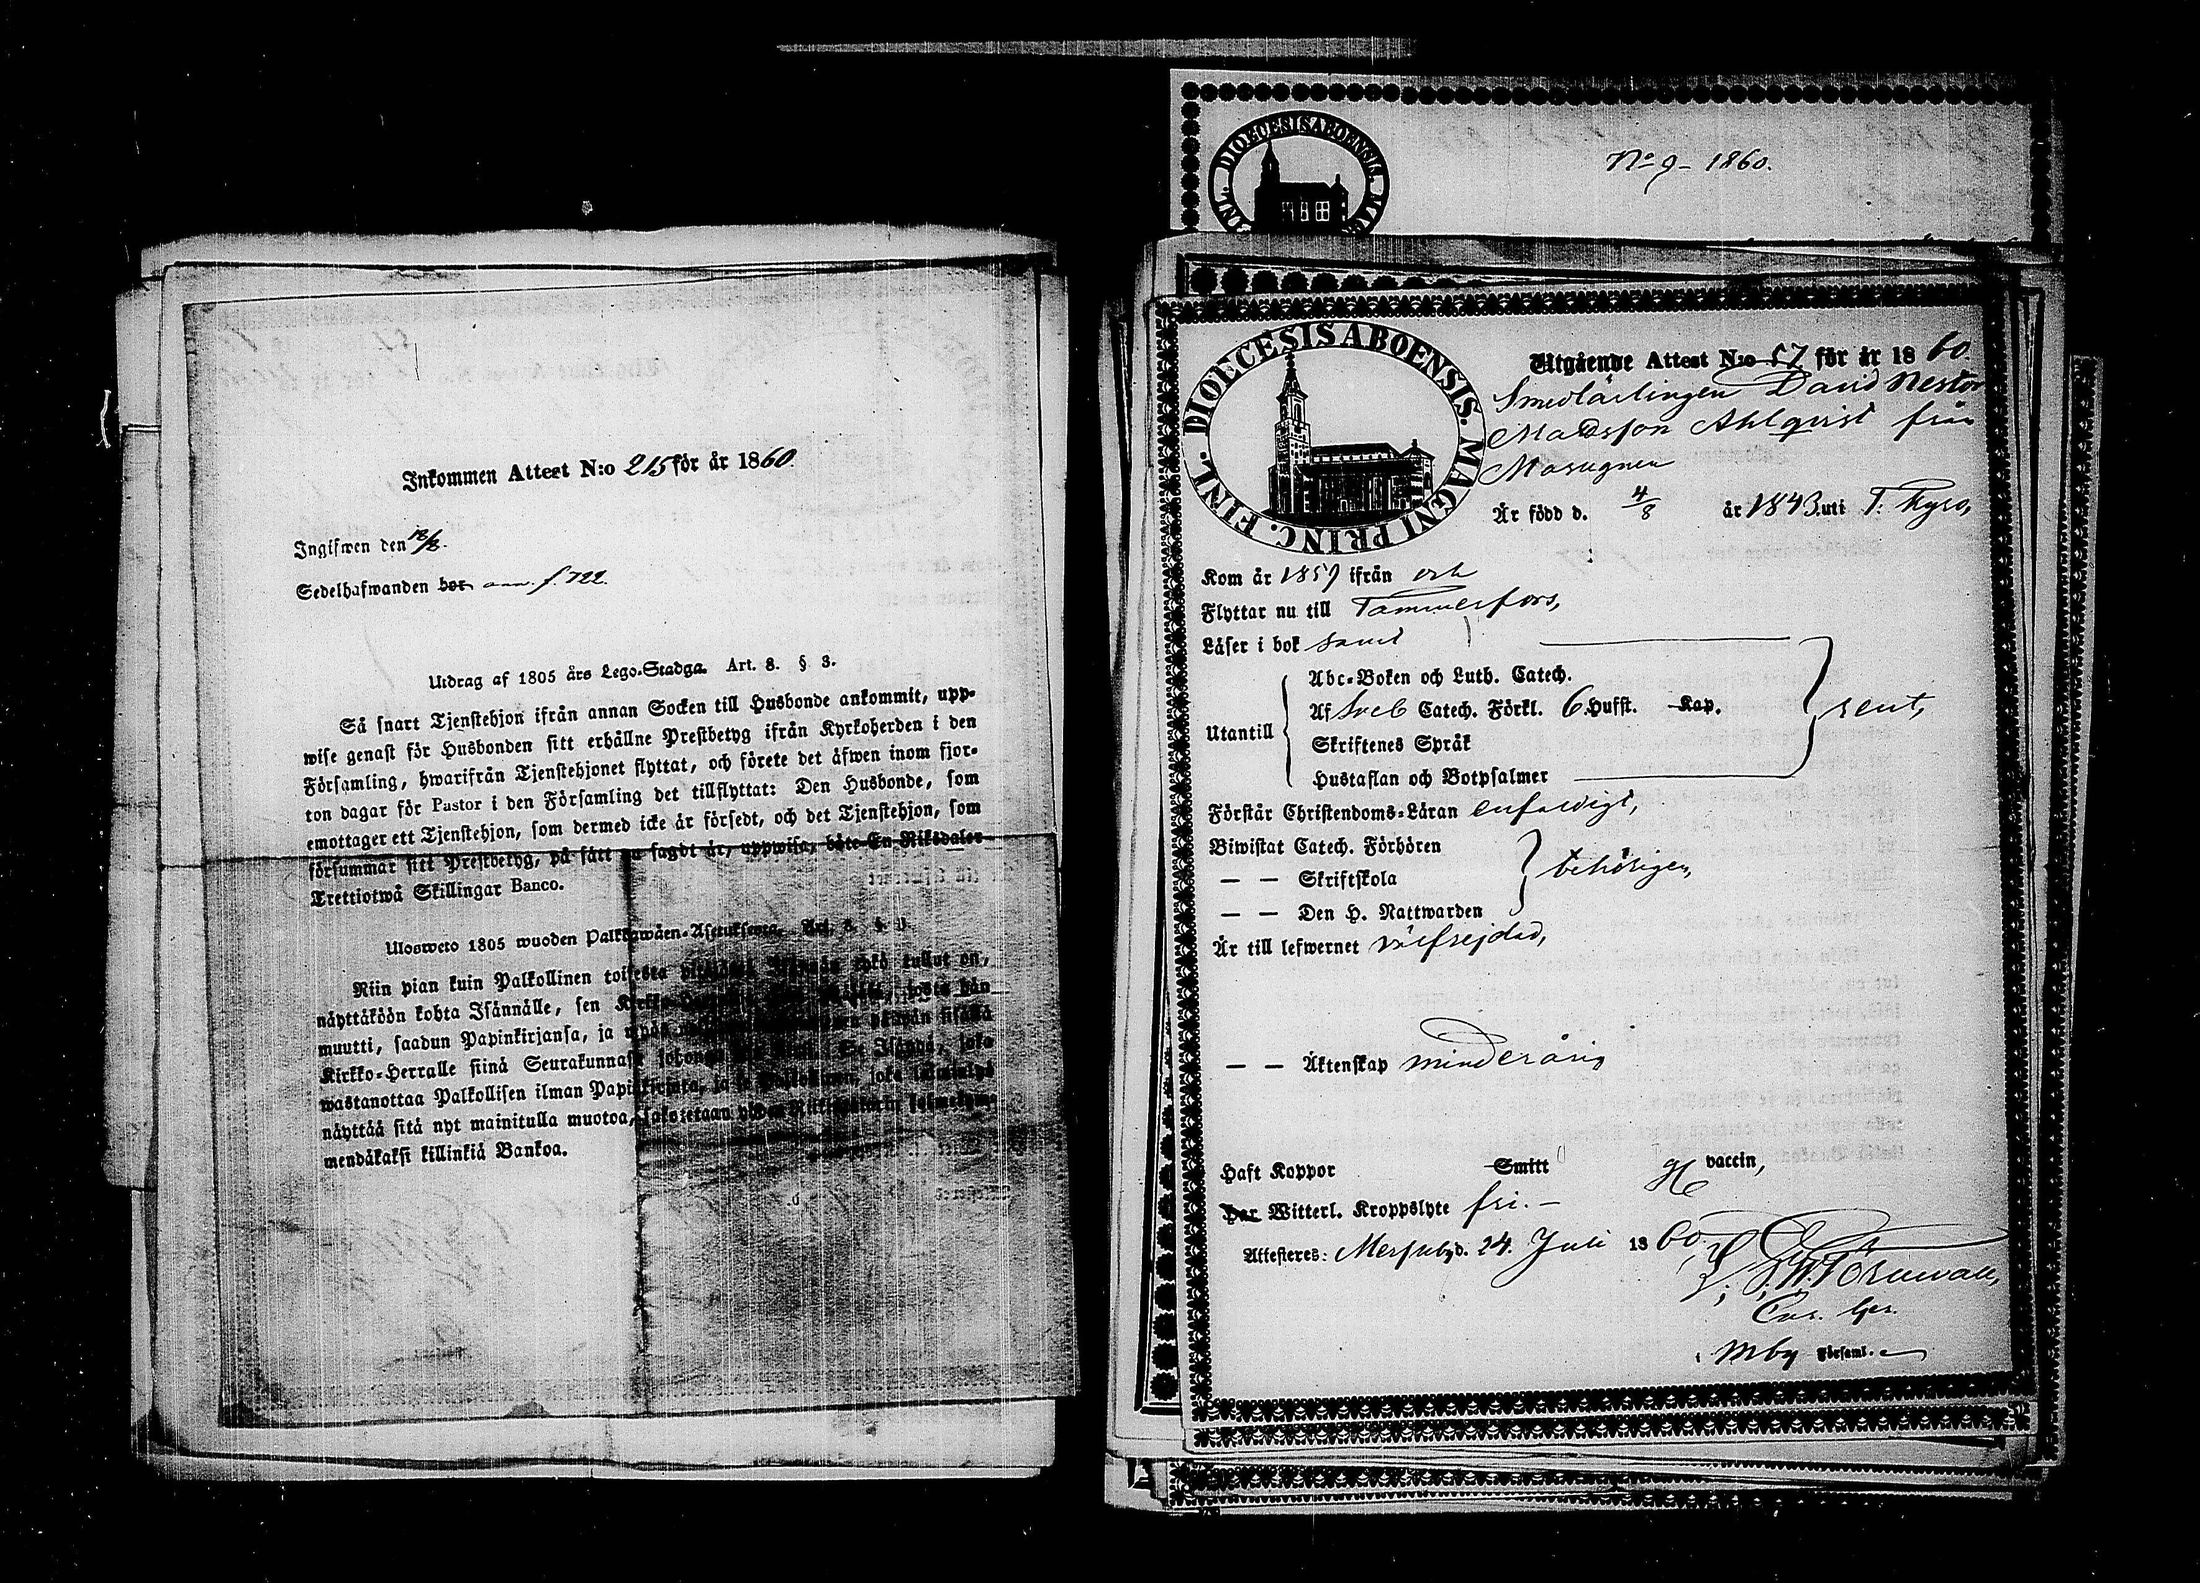 Inkommen Attest N:o 215 för år 1860.
Ingifwen den 18/8.
Sedelhafwanden bor ann. f. 722.
Utdrag af 1805 års Lego-Stadga. Art. 8. § 3.
Så snart Tjenstehjon ifrån annan Socken till Husbonde ankommit, upp-
wise genast för Husbonden sitt erhållne Prestbetyg ifrån Kyrkoherden i den
Församling, hwarifrån Tjenstehjonet flyttat, och förete det äfwen inom fjor-
ton dagar för Pastor i den Församling det tillflyttat: Den Husbonde, som
emottager ett Tjenstehjon, som dermed icke är försedt, och det Tjenstehjon, som
försummar sitt Prestbetyg, på sätt nu sagdt är, uppwisa, böte En Riksdaler
Trettiotwå Skillingar Banco.
Ulosweto 1805 wuoden Palkkawäen-Asetuksesta. Art. 8. § 3.
Niin pian kuin Palkollinen toisesta tullut on,
näyttäköön kohta Isännälle, sen josta hän
muutti, saadun Papinkirjansa, ja sisällä
Kirkko-Herralle siinä Seurakunnasa joka
wastanottaa Palkollisen ilman Papinkirjata, ja joka
näyttää sitä nyt mainitulla muotoa,
mendäkaksi killinkiä Bankoa.
N:o 9 - 1860.
DIOECESIS ABOENSIS. MAG
DIOECESIS ABOENSIS. MAGNI PRINC. FINL.
Utgående Attest N:o 57 för år 1860
Smedlärlingen David Nestor
Madsson Ahlqvist från
Masugnen
Är född d. 4/8 år 1843. uti T. Kyro,
Kom år 1857 ifrån och
Flyttar nu till Tammerfors,
Läser i bok samt
Abc-Boken och Luth. Catech.
Af Sveb Catech. Förkl. 6 Hufst. Kap.
Utantill
rent,
Skriftenes Språk
Hustaflan och Botpsalmer
Förstår Christendoms-Läran enfaldigt,
Biwistat Catech. Förhören
— — Skriftskola
behörigen,
— — Den H. Nattwarden
Är till lefwernet välfrejdad,
— — Äktenskap minderårig
Haft Koppor Smitt vaccin,
Har Witterl. Kroppslyte fri. -
Attesteres: Mersuby d. 24. Juli 1860,
Mby Församl.